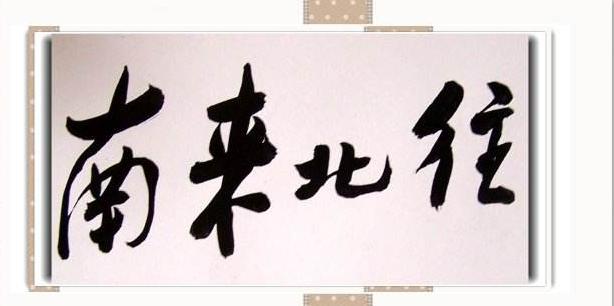 南来北往